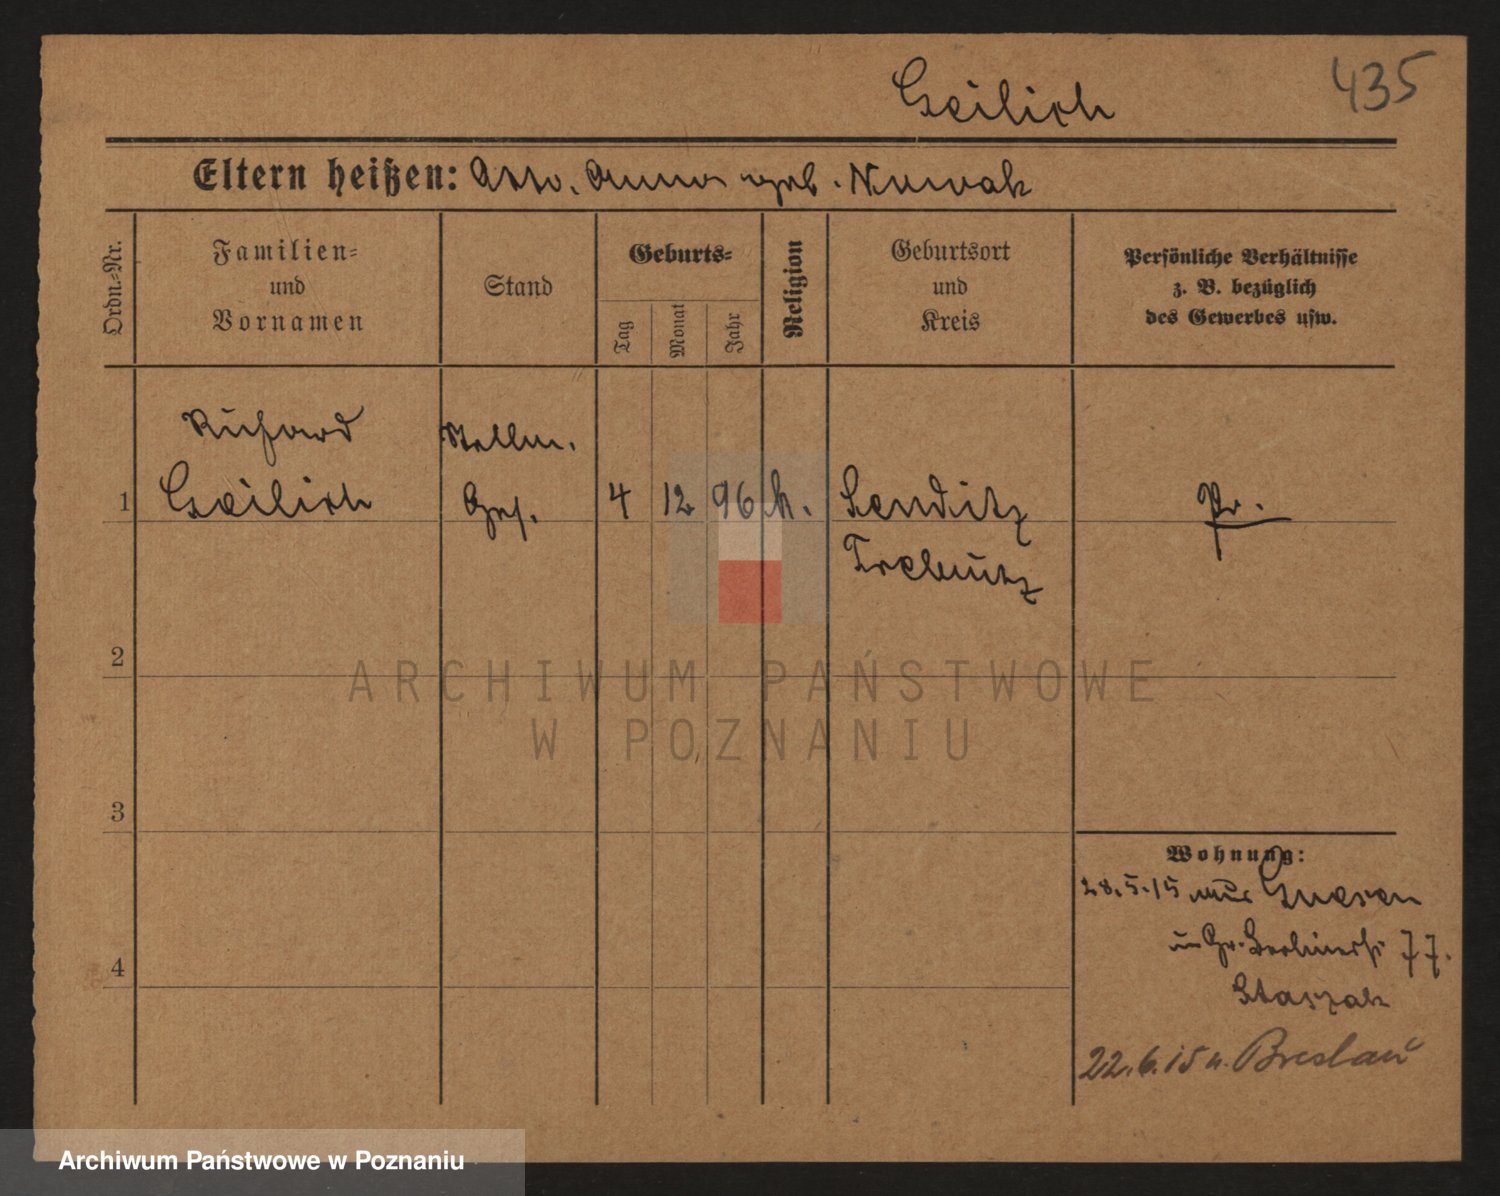 Geilich 435
Eltern heißen: Anna geb. Nowak
Ordn.-Nr.
Familien-
und
Vornamen
Stand
Geburts-
Tag
Monat
Jahr
Religion
Geburtsort
und
Kreis
Persönliche Verhältnisse
z. B. bezüglich
des Gewerbes usw.
Richard
Stellm.
1 Geilich Ges. 4 12 96 k. Pr.
Trebnitz
2
ARCHIWUM PAŃSTWOWE
W POZNANIU
3
Wohnung:
28.5.15 aus Gnesen
Gr. Berlinerstr. 77.
4
Staszak
22.6.15 n. Breslau
Archiwum Państwowe w Poznaniu